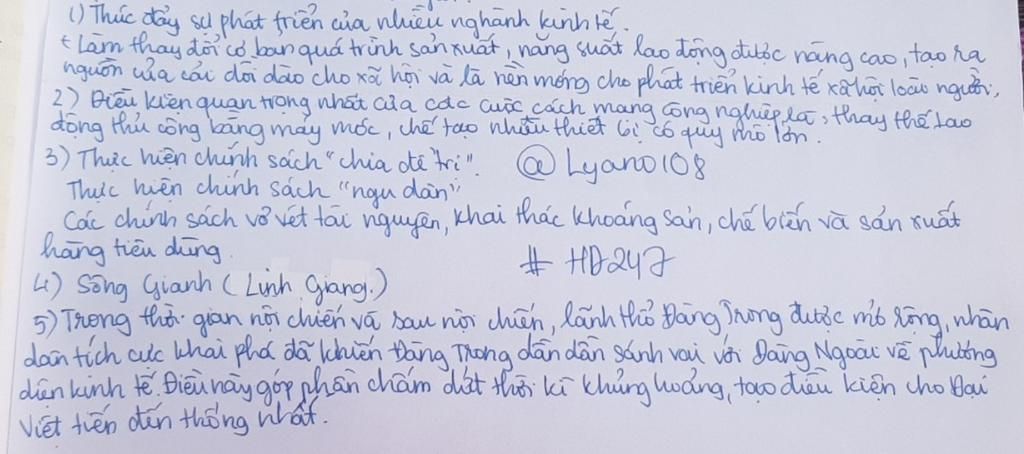 1) Thúc đẩy sự phát triển của nhiều nghành kinh tế.
+ Làm thay đổi cơ bản quá trình sản xuất, năng suất lao động được nâng cao, tạo ra
nguồn của cải dồi dào cho xã hội và là nền móng cho phát triển kinh tế xã hội loài người,
2) Điều kiện quan trọng nhất của các cuộc cách mạng công nghiệp là, thay thế lao
động thủ công bằng máy móc, chế tạo nhiều thiết bị có quy mô lớn.
3) Thực hiện chính sách "chia để trị". @Lyano108
Thực hiện chính sách "ngu dân"
Các chính sách vơ vét tài nguyên, khai thác khoáng sản, chế biến và sản xuất
hàng tiêu dùng.
# HD247
4) Sông Gianh (Linh Giang.)
5) Trong thời gian nội chiến và sau nội chiến, lãnh thổ Đàng Trong được mở rộng, nhân
dân tích cực khai phá đã khiến Đàng Trong dần dần sánh vai với Đàng Ngoài về phương
diện kinh tế. Điều này góp phần chấm dứt thời kì khủng hoảng, tạo điều kiện cho Đại
Việt tiến đến thống nhất.